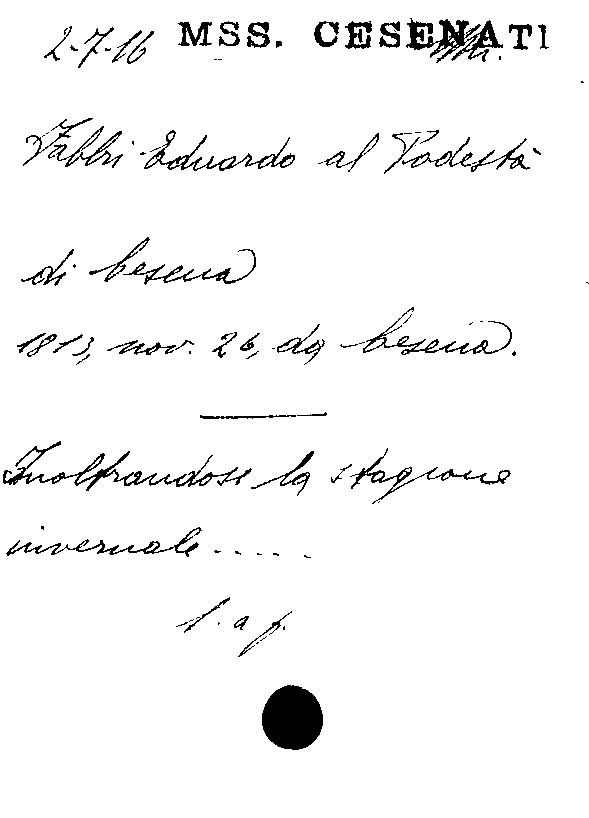 2-7-16 MSS. CESENATI
Fabbri Eduardo al Podestà
di Cesena
1813, nov. 26, da Cesena.
Inoltrandosi la stagione
invernale.....
l. a f.